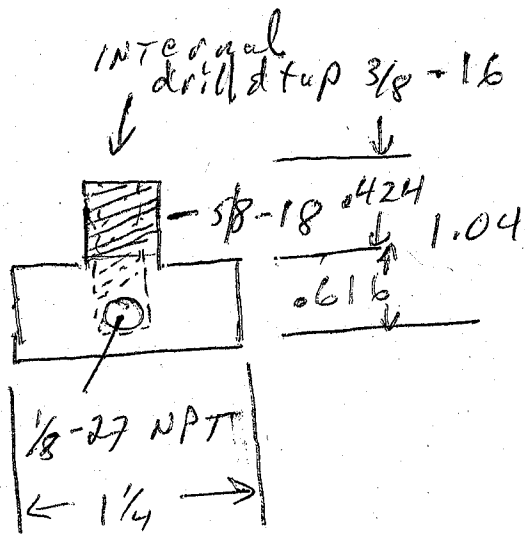 INTernal
drill & tap 3/8 - 16
5/8-18 .424
1.04
.616
1/8-27 NPT
1 1/4